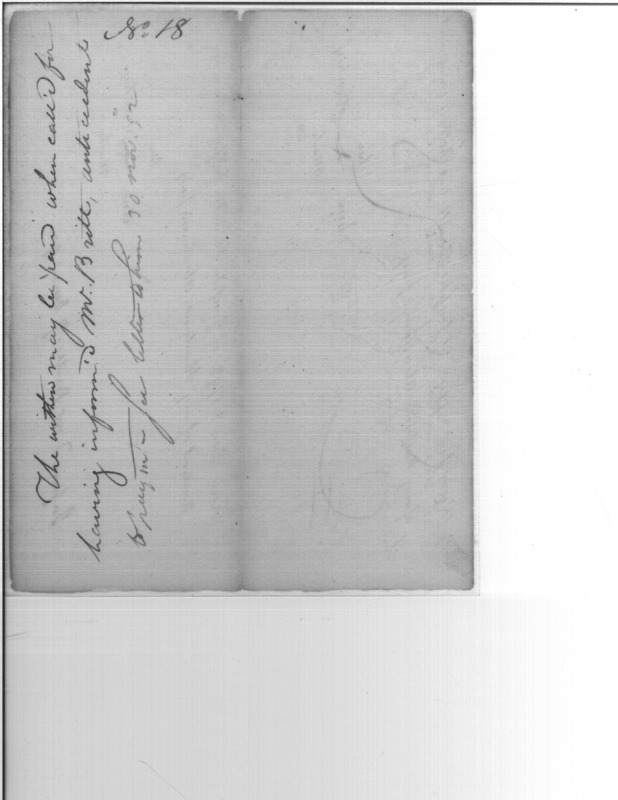 No. 18
The within may be paid when call'd for
having inform'd Mr. Britt, antecedent
to paym - per letter to him 30 Nov. 52